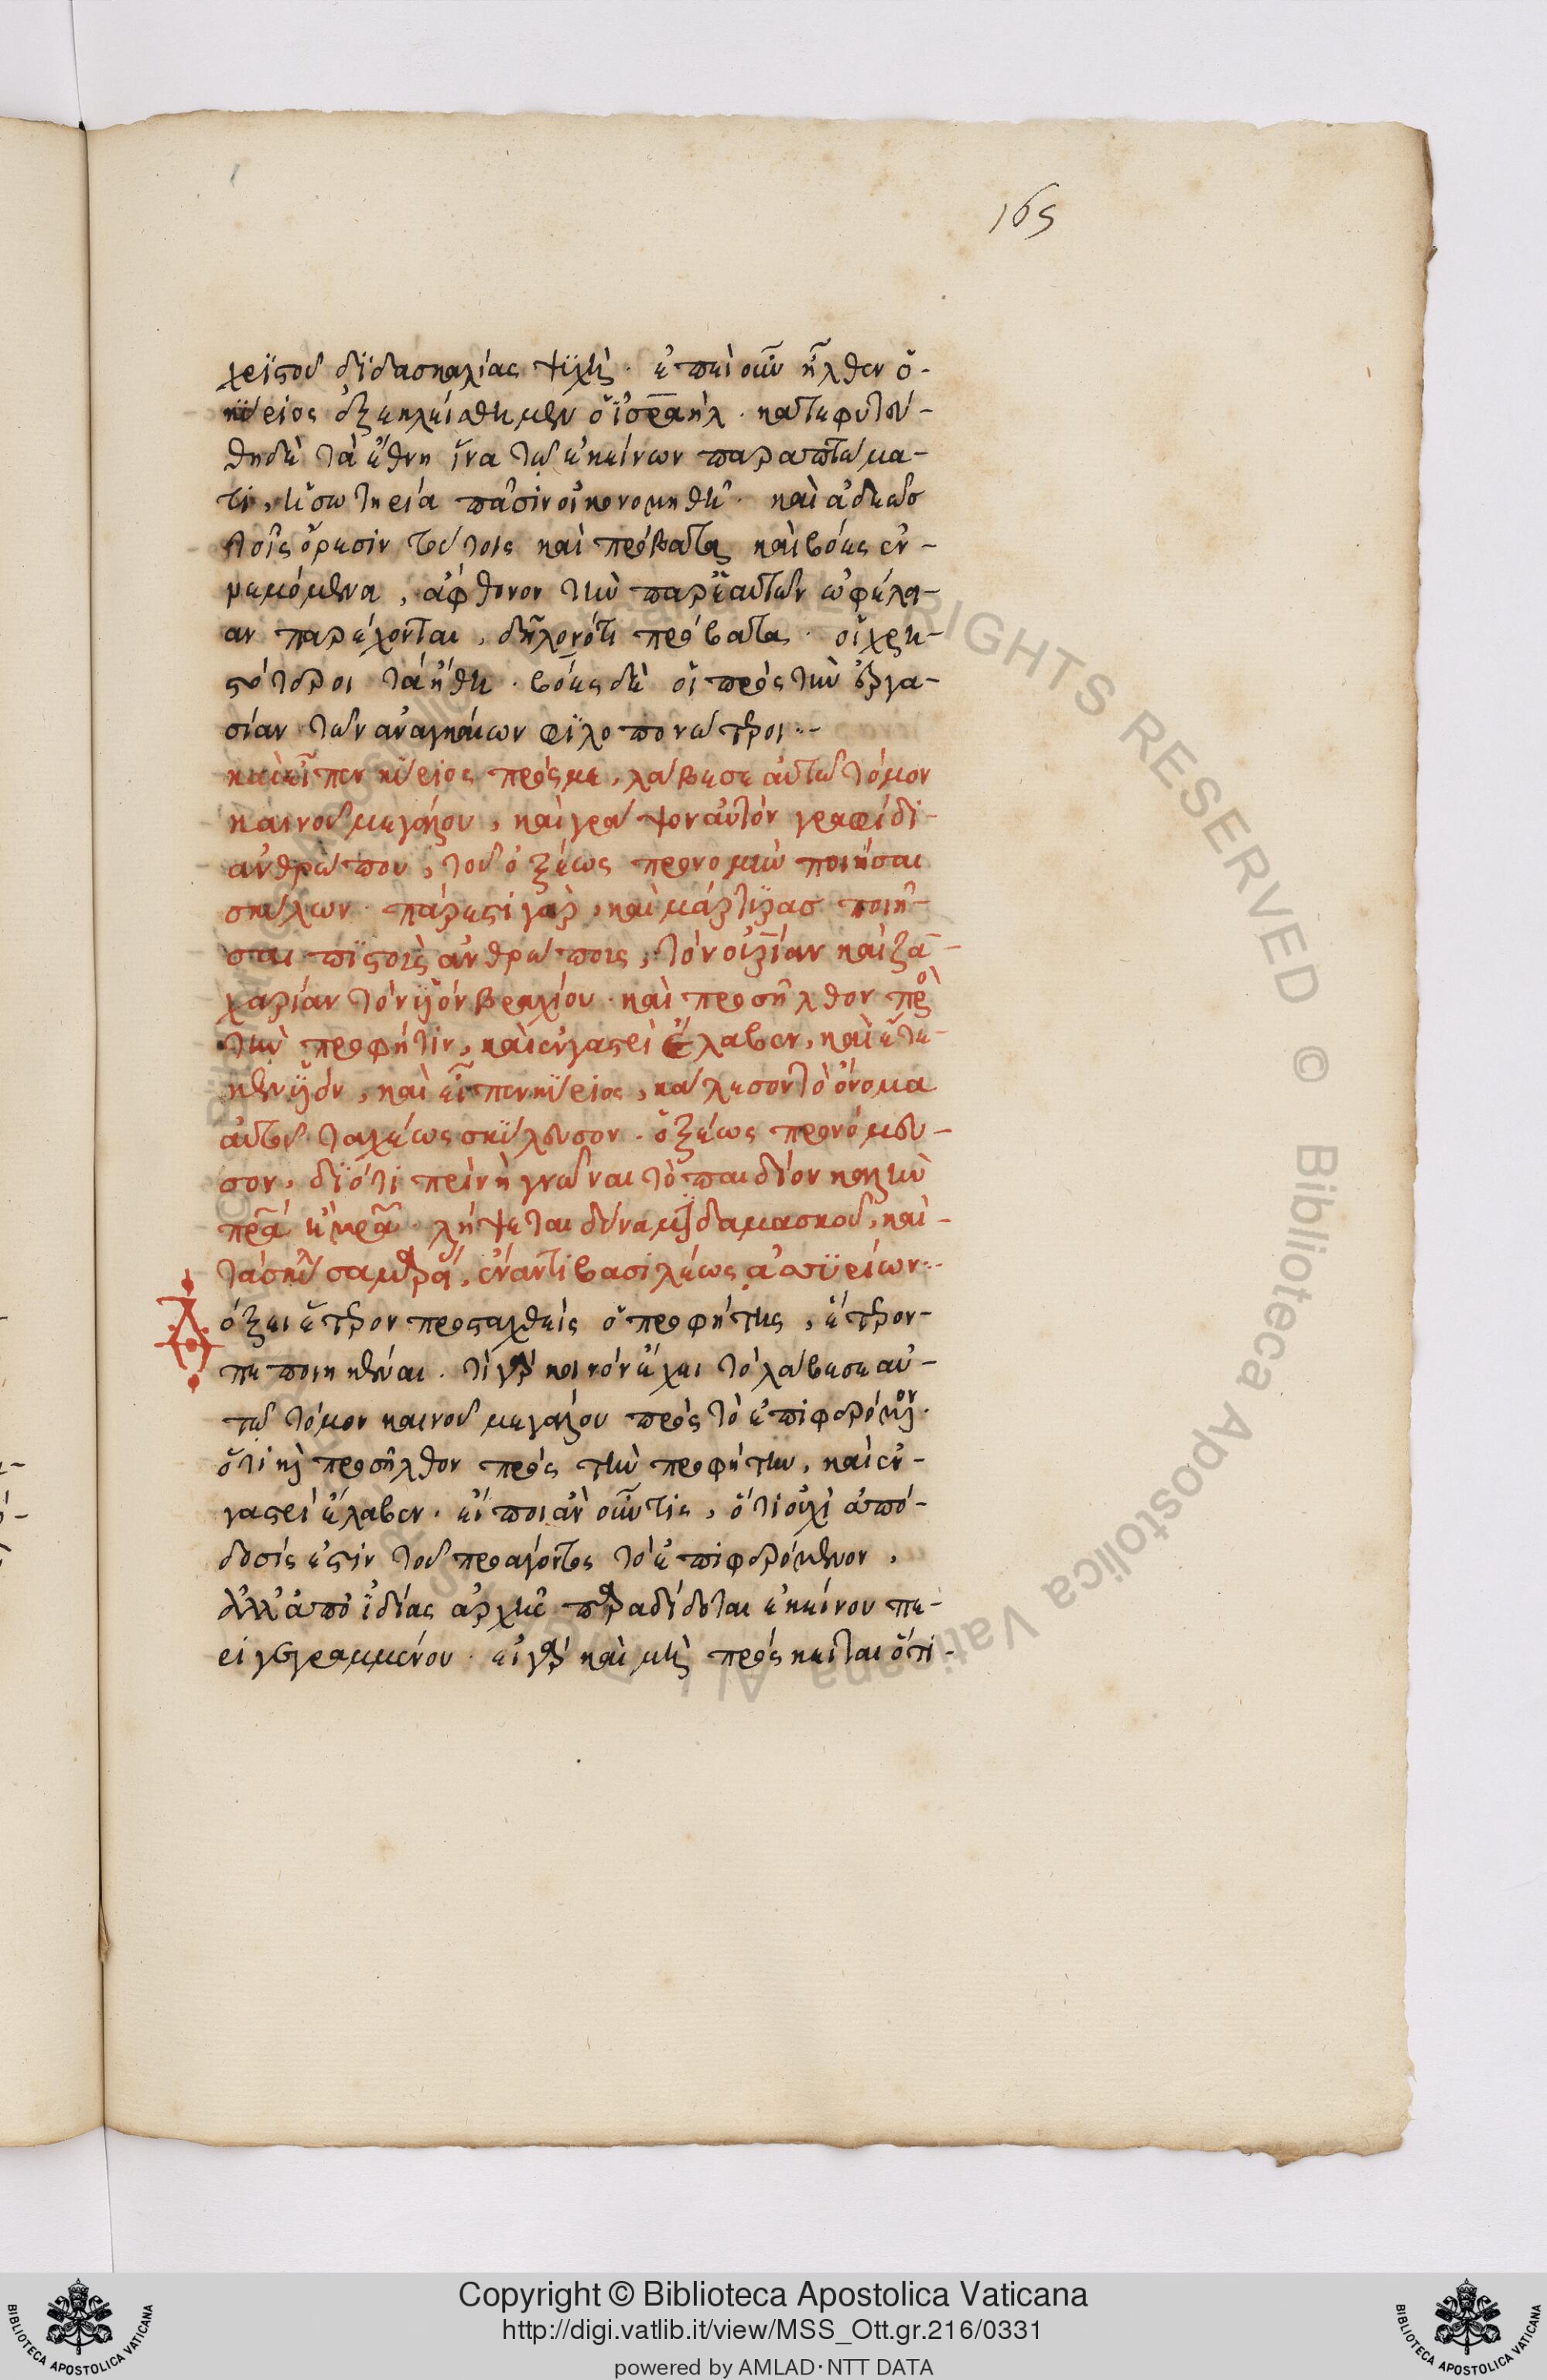 165
χριστοῦ διδασκαλίας ψυχῆς. ἐπεὶ οὖν ἦλθεν ὁ-
κύριος ἐξεκλείσθη μὲν ὁ ἰσραὴλ. κατεφυτεύ-
θη δὲ τὰ ἔθνη ἵνα τῶ ἐκείνων παραπτώμα-
τι, ἡ σωτηρία πᾶσιν οἰκονομηθῆ. καὶ ἀδεῶσ
τοῖς ὄρεσιν τούτοις καὶ πρόβατα καὶ βόες ἐν-
νεμόμενα, ἄφθονον τὴν παρ' ἑαυτῶν ὠφέλει-
αν παρέχονται, δηλονότι πρόβατα. οἱ χρη-
στότεροι τὰ ἤθη. βόες δὲ οἱ πρὸς τὴν ἐργα-
σίαν τῶν ἀναγκαίων φιλοπονώτεροι..-
καὶ εἶπεν κύριος πρός με, λάβε σεαυτῶ τόμον
καινοῦ μεγάλου, καὶ γράψον αὐτὸν γραφίδι-
ἀνθρώπου, τοῦ ὀξέως προνομὴν ποιῆσαι
σκύλων. πάρεστι γάρ, καὶ μάρτυρασ ποιῆ-
σαι πιστοὺς ἀνθρώπους, τὸν οὐρίαν καὶ ζα-
χαρίαν τὸν υἱὸν βαραχίου. καὶ προσῆλθον πρὸς
τὴν προφῆτιν, καὶ ἐν γαστρὶ ἔλαβεν, καὶ ἔτε-
κεν υἱόν, καὶ εἶπεν κύριος, κάλεσον τὸ ὄνομα
αὐτοῦ ταχέως σκύλευσον. ὀξέως προνόμευ-
σον, διότι πρὶν ἢ γνῶναι τὸ παιδίον καλεῖν
πρα ἢ μρα. λήψεται δύναμιν δαμασκοῦ, καὶ-
τὰ σκῦλα σαμαρείας, ἔναντι βασιλέως ἀσσυρίων..-
Δόξει ἕτερον προσταχθεὶς ὁ προφήτης, ἕτερον-
πεποιηκέναι. τί γὰρ κοινὸν ἔχει τὸ λάβε σεαυ-
τῶ τόμον καινοῦ μεγάλου πρὸς τὸ ἐπιφερόμενον.
ὅτι καὶ προσῆλθον πρὸς τὴν προφῆτιν, καὶ ἐν-
γαστρὶ ἔλαβεν. εἴποι ἂν οὖν τις, ὅτι οὐχὶ ἀπό-
δοσίς ἐστιν τοῦ προάγοντος τὸ ἐπιφερόμενον,
ἀλλ' ἀπὸ ἰδίας ἀρχῆς παραδίδοται ἐκείνου πε-
ριγεγραμμένου. εἰ γὰρ καὶ μὴ πρόσκειται ὅτι-
Copyright © Biblioteca Apostolica Vaticana
http://digi.vatlib.it/view/MSS_Ott.gr.216/0331
powered by AMLAD·NTT DATA